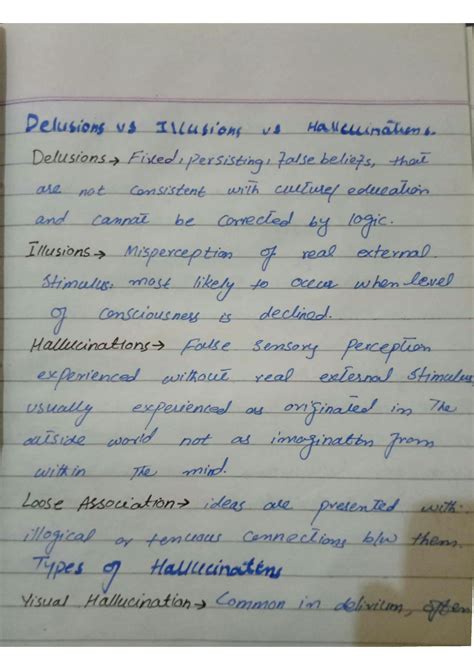 Delusions vs Illusions vs Hallucinations.
Delusions → Fixed, persisting, false beliefs, that
are not consistent with culture/education
and cannot be corrected by logic.
Illusions → Misperception of real external
stimulus, most likely to occur when level
of consciousness is declined.
Hallucinations → False sensory perception
experienced without real external stimulus
usually experienced as originated in The
outside world not as imagination from
within The mind.
Loose Association → ideas are presented with
illogical or tenuous connections b/w them.
Types of Hallucinations
Visual Hallucination → Common in delirium, often